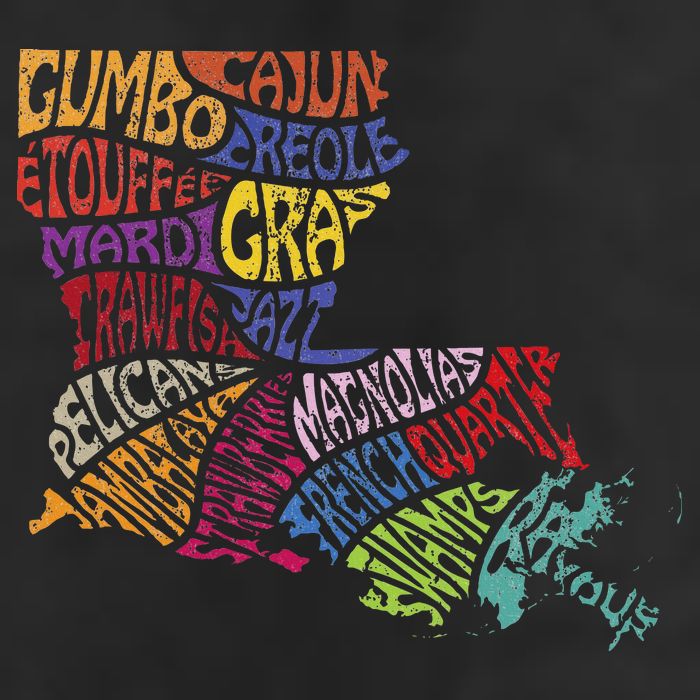 GUMBO CAJUN
CREOLE
ÉTOUFFÉE
MARDI GRAS
CRAWFISH JAZZ
PELICANS
MAGNOLIAS
JAMBALAYA
STRAWBERRIES
FRENCH QUARTER
SWAMPS
BAYOUS